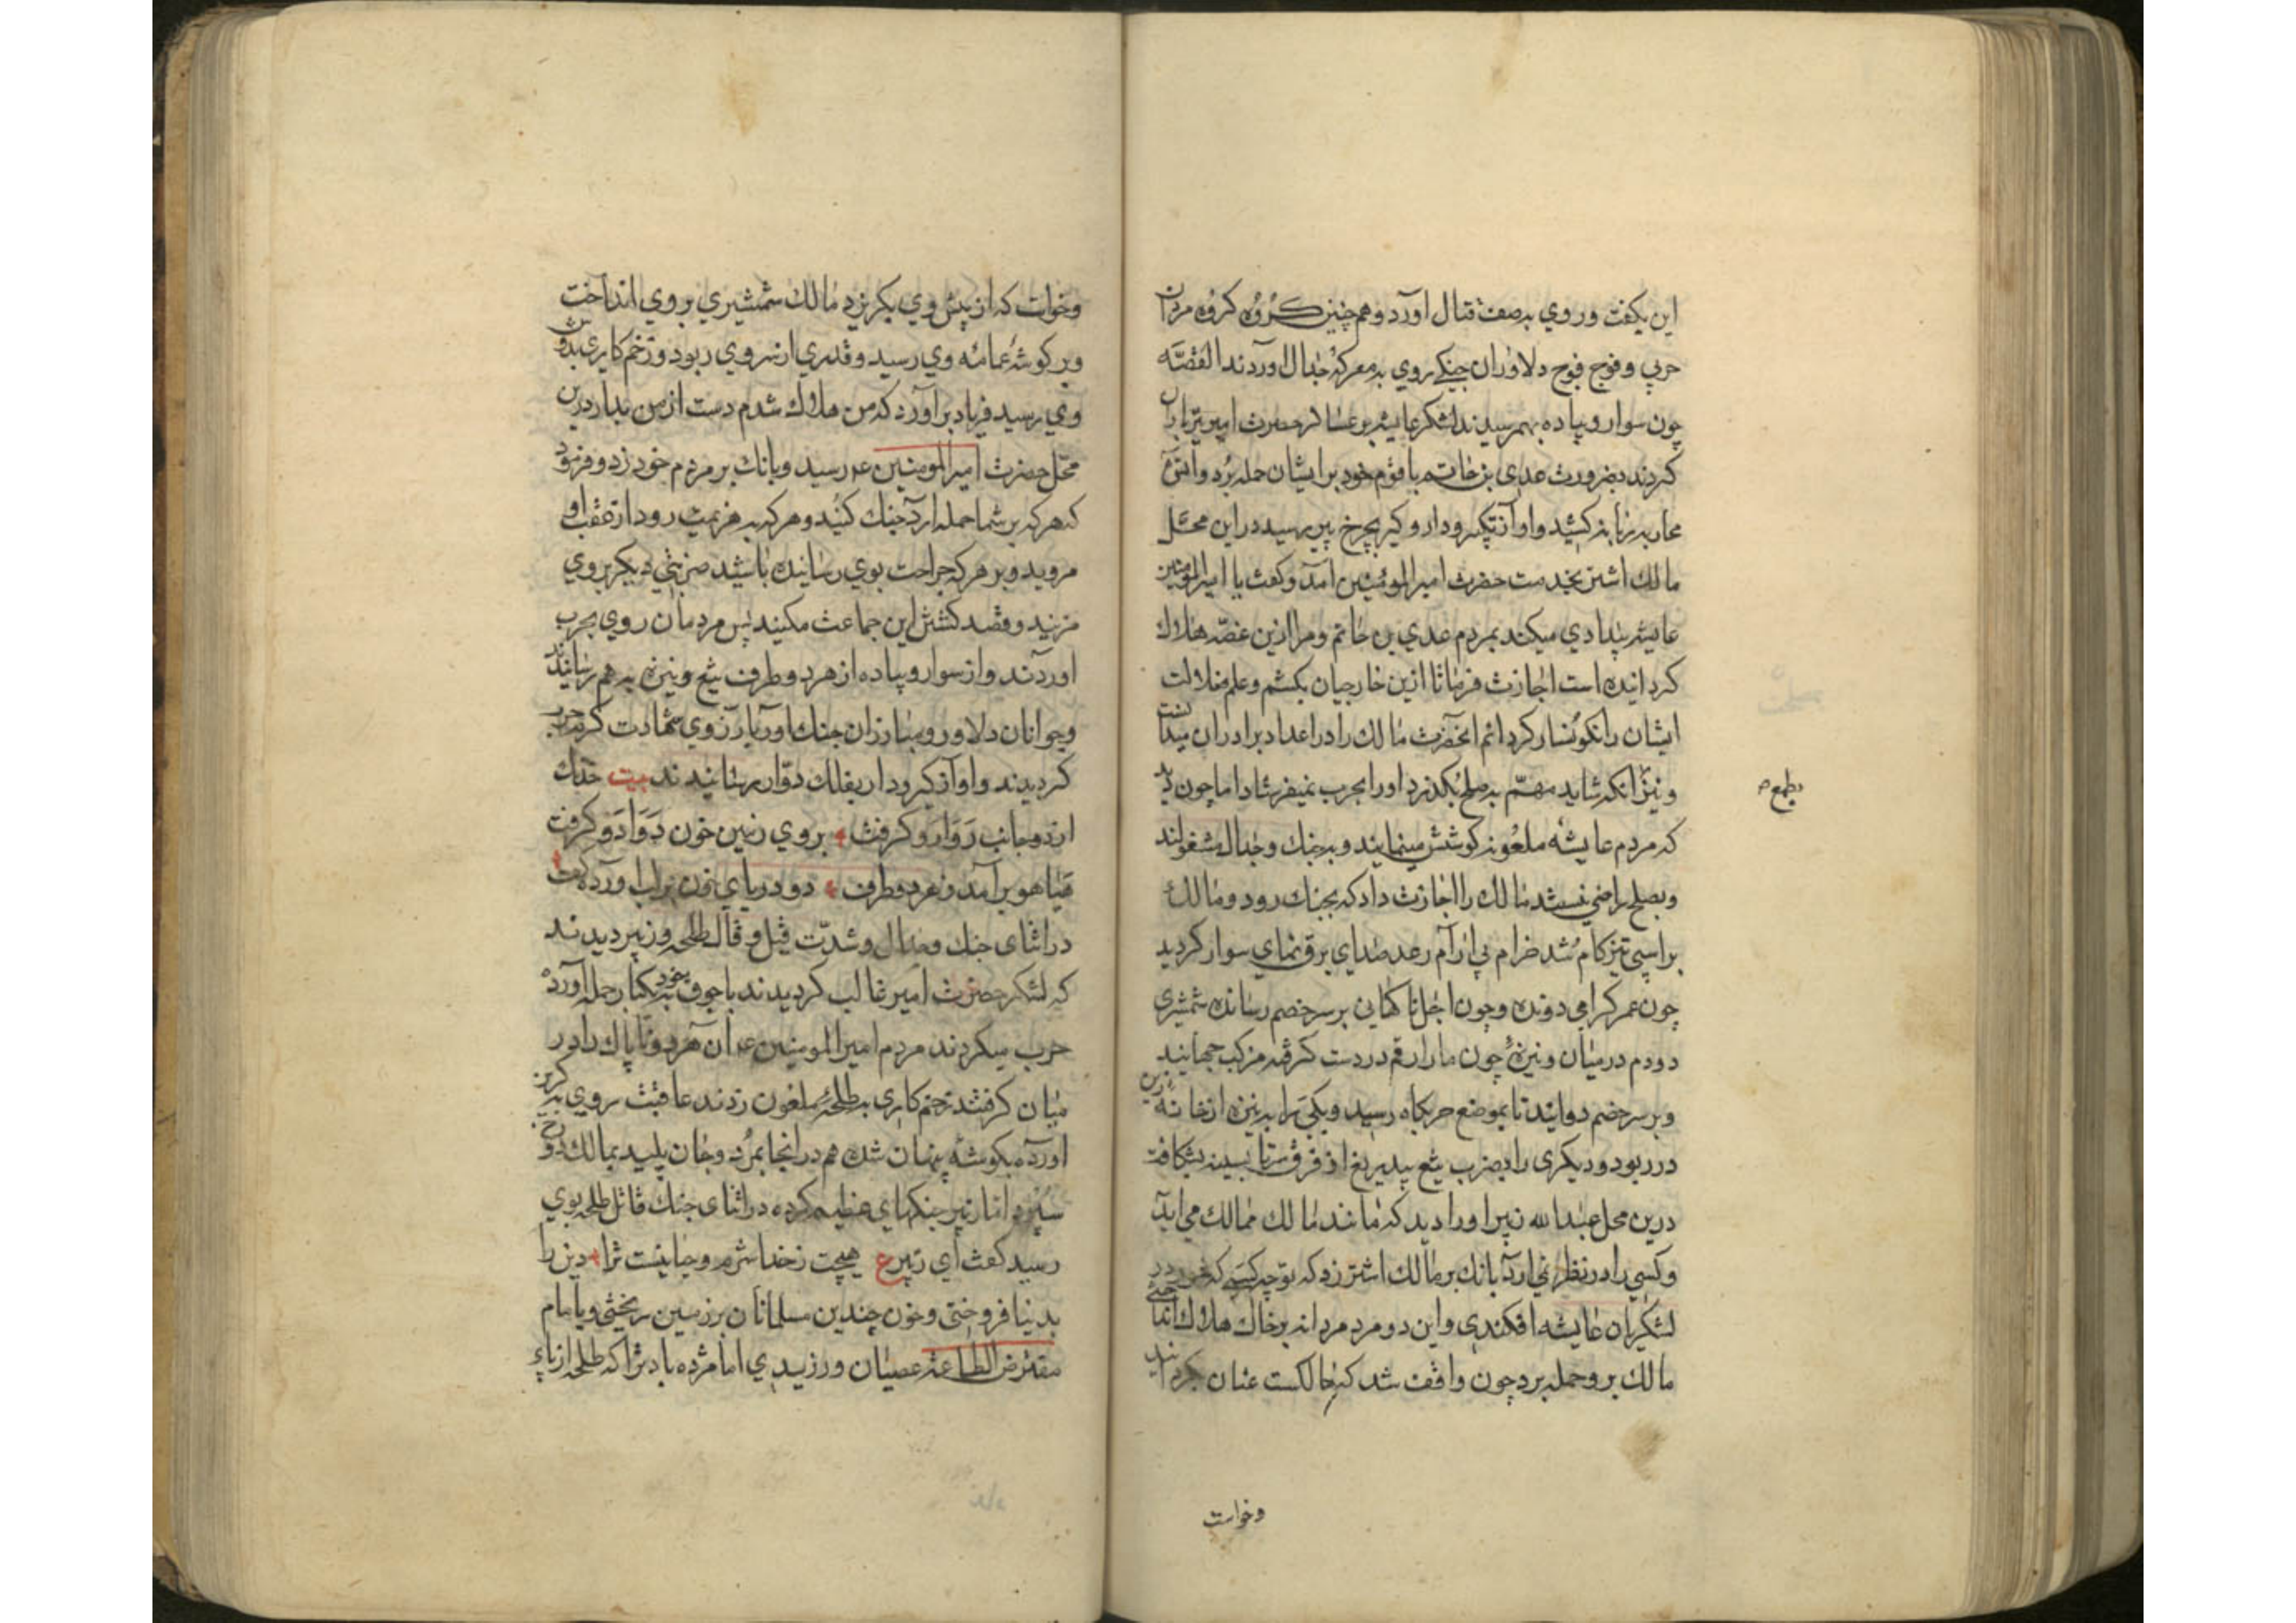 این بگفت و روی به صف قتال آورد و هم چنین گروه گروه مردان
حربی و فوج فوج دلاوران جنگی روی به معرکهٔ جدال اوردند القصّه
چون سوار و پیاده بهم رسیدند لشکر عایشه بر عساکر حضرت امیر تیرباران
کردند بضرورت عدی بن حاتم با قوم خود بر ایشان حمله بُرد و اتش
محاربه زبانه کشید و اواز تکبیر و دار و گیر بچرخ پیر رسید در این محل
مالك اشتر بخدمت حضرت امیر المؤمنین آمد و گفت یا امیر المؤمنین
عایشه بیدادی میکند بمردم عدی بن حاتم و مرا ازین غصّه هلاك
گردانیده است اجازت فرما تا ازین خارجیان بکشم و علم ضلالت
ایشان را نگونسار گردانم انحضرت مالك را در اعداد برادران میدانست
و نیز انکه شاید مهمّ به صلح بگذرد او را بحرب نمیفرستاد اما چون دید
بطمع
که مردم عایشه ملعونه کوشش مینمایند و به جنك و جدال مشغولند
و بصلح راضی نیستند مالك را اجازت داد که بجنك رود و مالك
بر اسپی تیزکام تُند خرام بی ارام رعد صدای برق نمای سوار گردید
چون عمر گرامی دونده و چون اجل ناگهانی بر سر خصم رسانده شمشیری
دودم در میان و نیزهٔ چون مار ارقم در دست گرفته مرکب جهانید
و بر سر خصم دوانید تا بموضع حربگاه رسید و یکی را به نیزه از خانهٔ زین
در ربود و دیگری را بضرب تیغ بیدریغ از فرق سر تا بسینه بشکافت
درین محل عبدالله زبیر او را دید که مانند مالك ممالك می اید
و کسی را در نظر نمی ارد بانك بر مالك اشتر زد که تو چه کسی که خود در
لشکریان عایشه افکندی و این دو مرد مردانه بر خاك هلاك انداختی
مالك بر و حمله برد چون واقف شد که مالکست عنان بگردانید
و خواست
و خواست که از پیش وی بگریزد مالك شمشیری بر وی انداخت
و بر گوشهٔ عمامهٔ وی رسید و قدری از سر وی ربود و زخم کاری بدوش
وی رسید فریاد بر آورد که من هلاك شدم دست از من بدار درین
محل حضرت امیر المومنین ع رسید و بانك بر مردم خود زد و فرمود
که هر که بر شما حمله ارد جنك کنید و هر که به هزیمت رود از عقب او
مروید و بر هر که جراحت بوی رسانیده باشید ضربتی دیگر بر وی
مزنید و قصد کشتن این جماعت مکنید پس مردمان روی بحرب
اوردند و از سوار و پیاده از هر دو طرف تیغ و نیزه به هم رسانیدند
و جوانان دلاور و مبارزان جنك اور باَرزوی شهادت گرم حرب
گردیدند و اواز گیر و دار بفلك دوّار رسانیدند بیت خدنك
از دو جانب رَوَارَو گرفت بر وی زمین خون دَوَادَو گرفت
هیاهو بر آمد ز هر دو طرف دو دریای خون بر لب اورد کف
در اثنای جنك و جدال و شدّت قیل و قال طلحه و زبیر دیدند
که لشکر حضرت امیر غالب گردیدند با جوق خود به یکبار حمله اورده
حرب میکردند مردم امیر المومنین ع آن هر دو ناپاك را در
میان گرفتند زخم کاری به طلحهٔ ملعون زدند عاقبت روی به گریز
اورده بگوشهٔ پنهان شد هم در انجا بمُرد و جان پلید بمالك دوزخ
سپرد اما زبیر جنگهای عظیم کرده در اثنای جنك قاتل طلحه بوی
رسید گفت ای زبیر ع هیچت ز خدا شرم و حیا نیست ترا دین را
بدنیا فروختی و خون چندین مسلمانان بر زمین ریختی و با امام
مفترض الطاعة عصیان ورزیدی اما مژده باد ترا که طلحه از پای